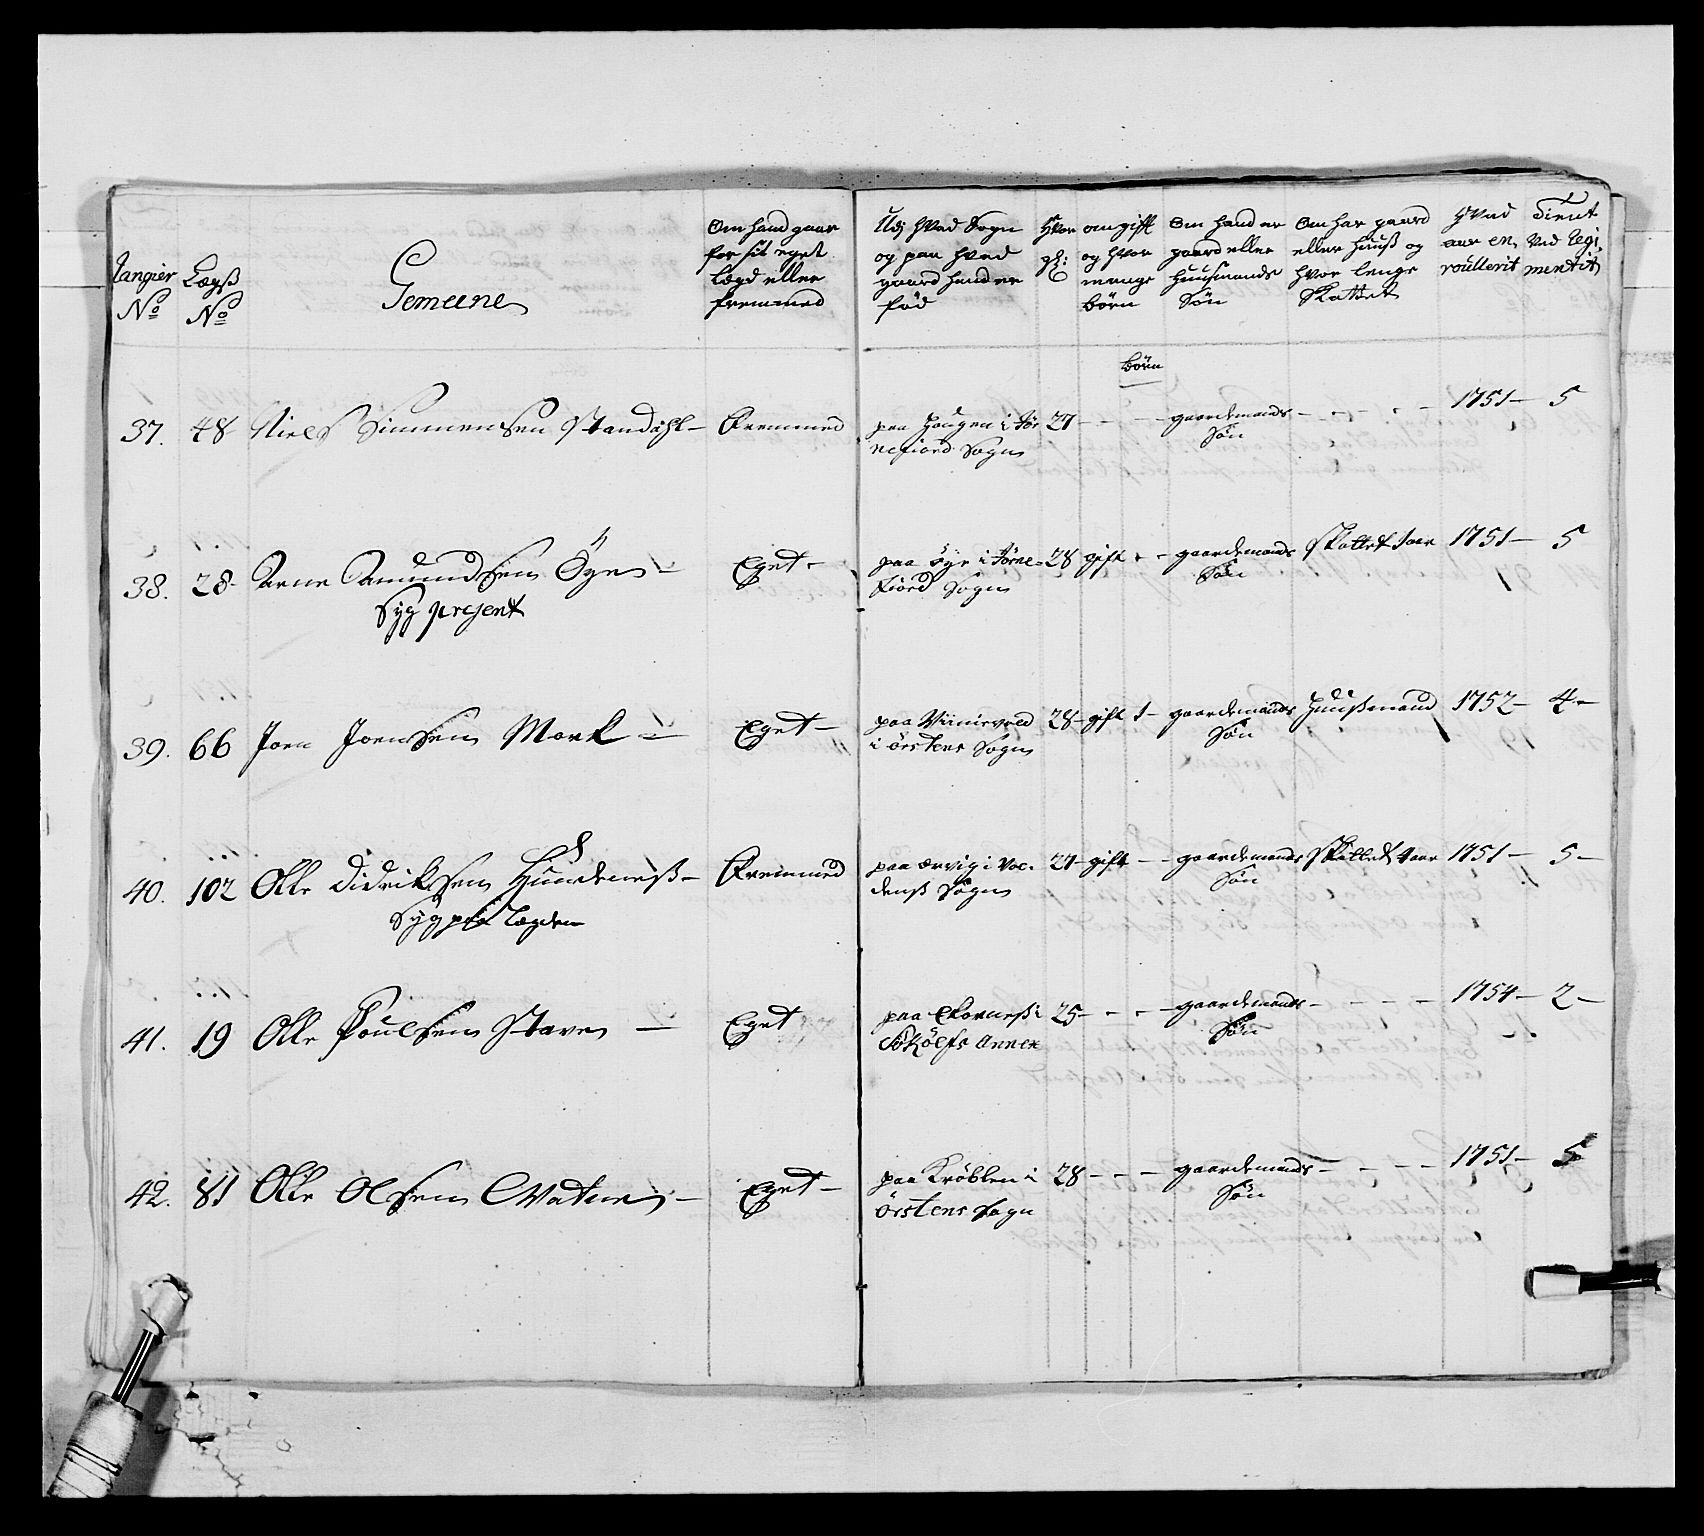 Rangier No
Lægß No
Gemeene
Om hand gaar
for sit eget
Lægd eller
fremmed
Udj hvad Sogn
og paa hvad
gaard hand er
fød
Hvor
gl:
om gift
og hvor
mange
børn
Om hand er
gaard eller
Huusmands
Søn
Om har gaard
eller Huuß og
hvor lenge
Skattet
Hvad
aar en,
roulleret
Tient
ved Regi,
mentet
børn
37. 48 Niels Simmensen Standahl - Fremmed
paa Haugen i Jør
nefiord Sogn
27 - - - gaardemands
Søn
- - - - 1751 - 5
38. 28 Arne Amundsen Øye - Eget -
Syg present
paa Øye i Jørne-
fiord Sogn
28 gift - - gaardemands
Søn
Skattet 1 aar 1751 - 5
39. 66 Joen Joensen Mork - Eget -
paa Viinisvold
i Ørstens Sogn
28 - gift 1 - gaardemands
Søn
Huußmand 1752 - 4 -
40. 102 Olle Didriksen Hundeneß - Fremmed
Syg paa Lægden
paa Ærvig i Voc-
denß Sogn
27 - gift - - gaardemands
Søn
Skattet 4 aar 1751 - 5 -
41. 19 Olle Poulsen Stave - Eget
paa Ekorneß i
Søkølfs Annex
25 - - - gaardemands
Søn
- - - - 1754 - 2 -
42. 81 Olle Olsen Vatne - Eget -
paa Krøblen i
Ørstens Sogn
28 - - - gaardemands
Søn
- - - - 1751 - 5